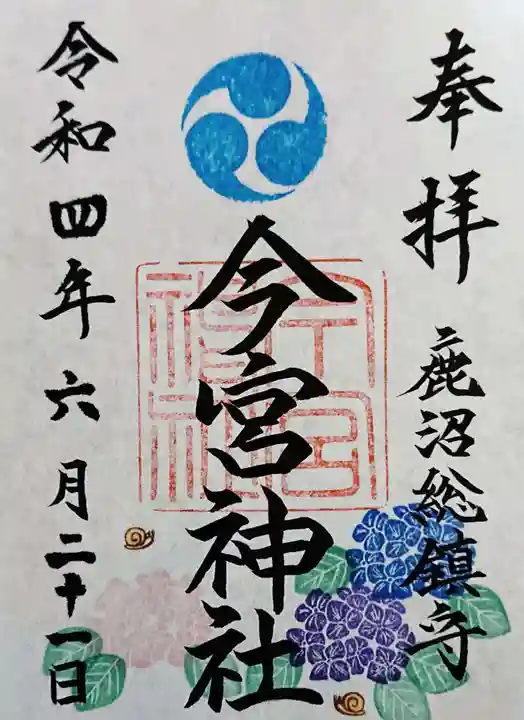 奉拝
鹿沼総鎮守
今宮神社
今宮神社
令和四年六月二十一日